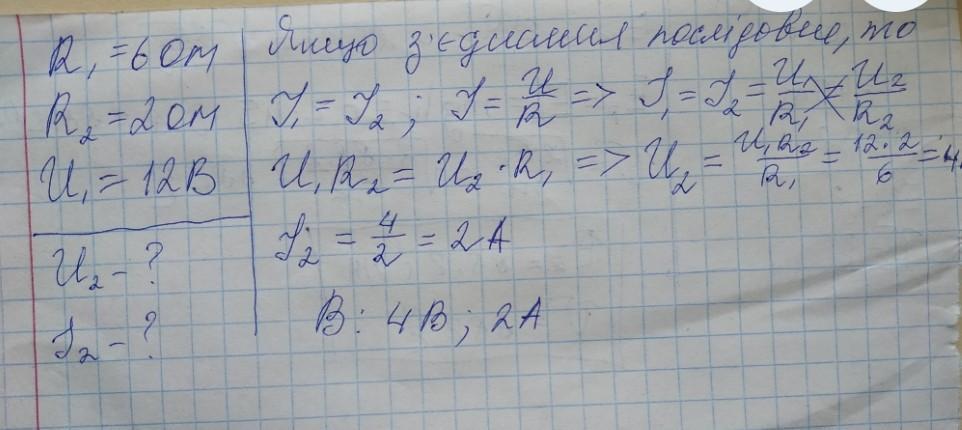 R₁ = 6 Ом
R₂ = 2 Ом
U₁ = 12 В
U₂ - ?
I₂ - ?
Якщо з'єднання послідовне, то
I₁ = I₂ ; I = U/R => I₁ = I₂ = U₁/R₁ = U₂/R₂
U₁R₂ = U₂·R₁ => U₂ = U₁R₂/R₁ = 12·2/6 = 4
I₂ = 4/2 = 2 А
В: 4В; 2А